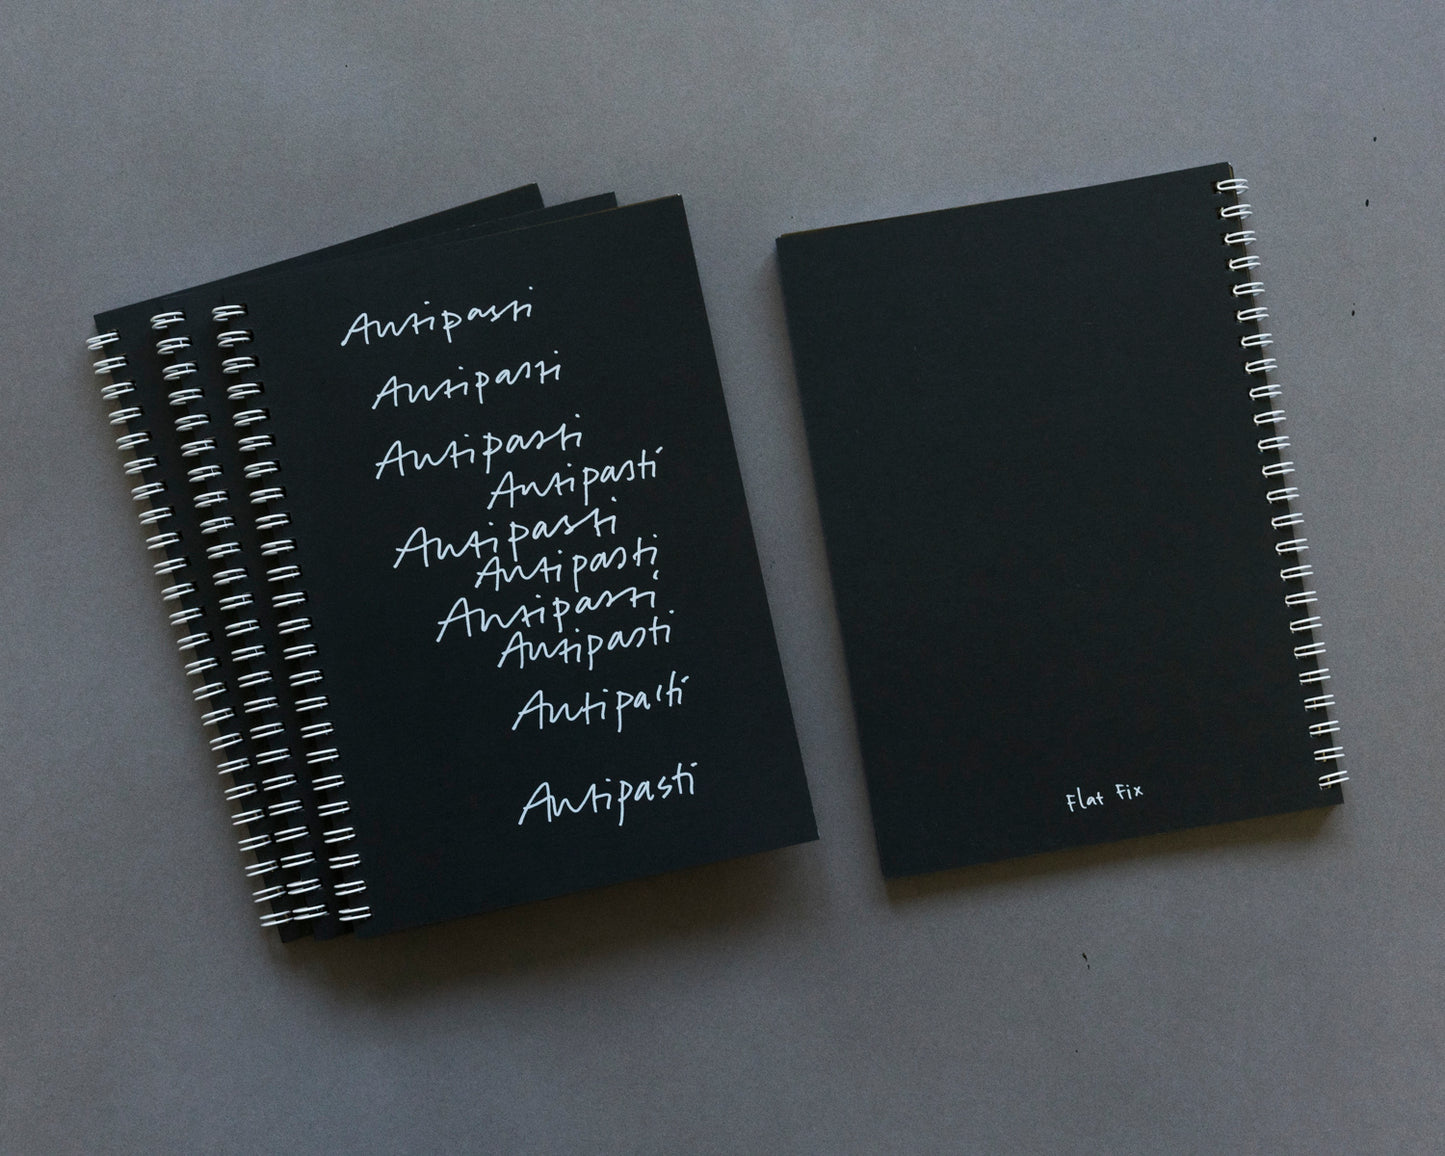 Antipasti
Antipasti
Antipasti
Antipasti
Antipasti
Antipasti
Antipasti
Antipasti
Antipasti
Antipasti
Flat Fix